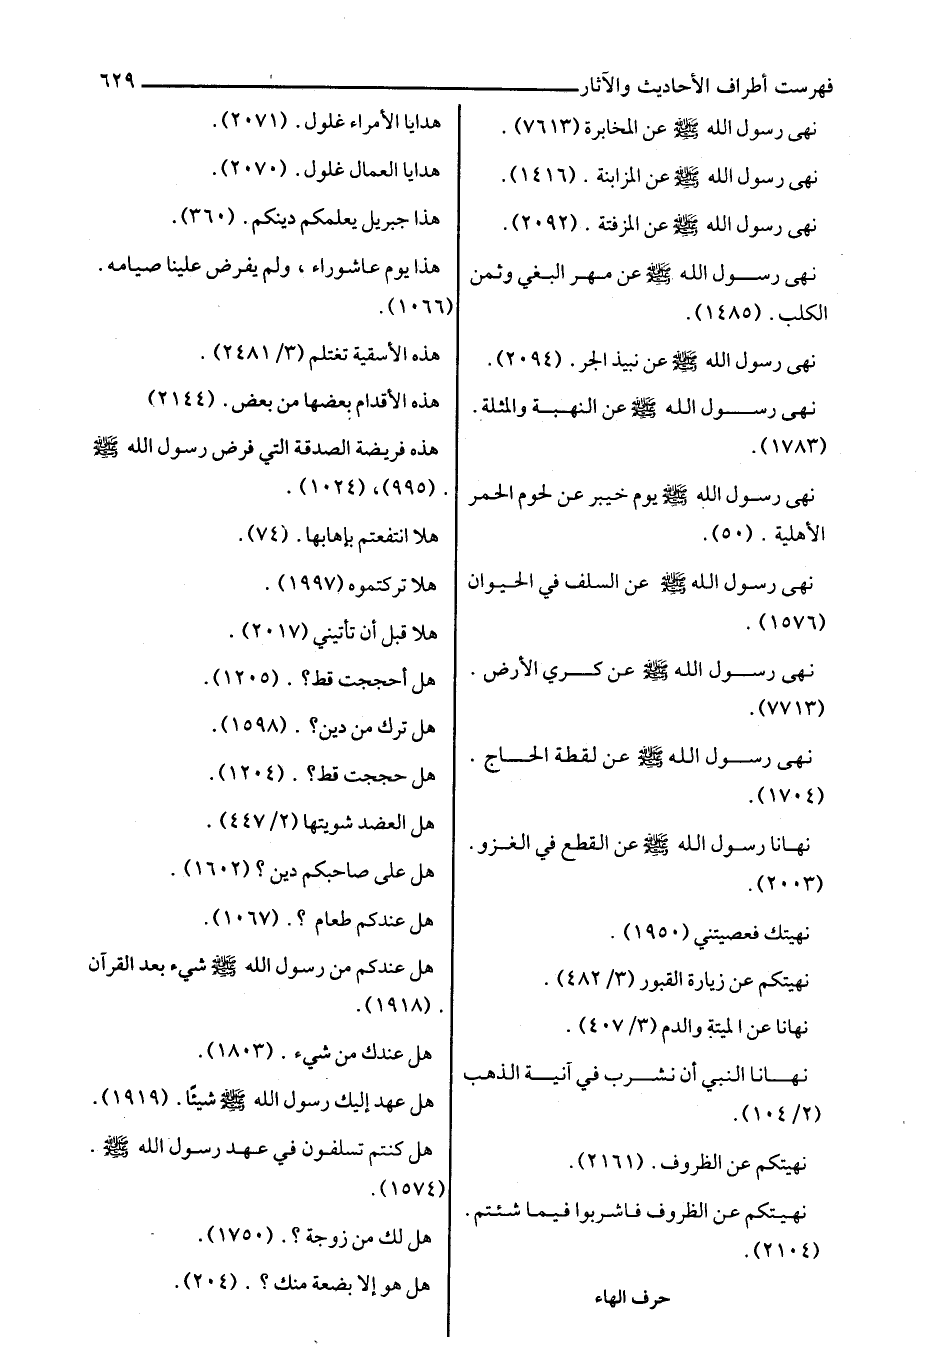 فهرست أطراف الأحاديث والآثار ٦٢٩
نهى رسول الله ﷺ عن المخابرة (٧٦١٣) .
نهى رسول الله ﷺ عن المزابنة . (١٤١٦).
نهى رسول الله ﷺ عن المزفتة . (٢٠٩٢).
نهى رسول الله ﷺ عن مهر البغي وثمن
الكلب. (١٤٨٥).
نهى رسول الله ﷺ عن نبيذ الجر. (٢٠٩٤).
نهى رسول الله ﷺ عن النهبة والمثلة.
(١٧٨٣).
نهى رسول الله ﷺ يوم خيبر عن لحوم الحمر
الأهلية . (٥٠).
نهى رسول الله ﷺ عن السلف في الحيوان
(١٥٧٦) .
نهى رسول الله ﷺ عن كري الأرض .
(٧٧١٣).
نهى رسول الله ﷺ عن لقطة الحاج .
(١٧٠٤).
نهانا رسول الله ﷺ عن القطع في الغزو.
(٢٠٠٣).
نهيتك فعصيتني (١٩٥٠) .
نهيتكم عن زيارة القبور (٣/ ٤٨٢) .
نهانا عن الميتة والدم (٣/ ٤٠٧) .
نهانا النبي أن نشرب في آنية الذهب
(٢/ ١٠٤).
نهيتكم عن الظروف. (٢١٦١).
نهيتكم عن الظروف فاشربوا فيما شئتم.
(٢١٠٤).
حرف الهاء
هدايا الأمراء غلول. (٢٠٧١).
هدايا العمال غلول. (٢٠٧٠).
هذا جبريل يعلمكم دينكم. (٣٦٠).
هذا يوم عاشوراء ، ولم يفرض علينا صيامه.
(١٠٦٦).
هذه الأسقية تغتلم (٣/ ٢٤٨١) .
هذه الأقدام بعضها من بعض. (٢١٤٤)
هذه فريضة الصدقة التي فرض رسول الله ﷺ
. (٩٩٥)، (١٠٢٤) .
هلا انتفعتم بإهابها. (٧٤).
هلا تركتموه (١٩٩٧) .
هلا قبل أن تأتيني (٢٠١٧) .
هل أحججت قط؟ . (١٢٠٥).
هل ترك من دين؟ . (١٥٩٨).
هل حججت قط؟ . (١٢٠٤).
هل العضد شويتها (٢/ ٤٤٧) .
هل على صاحبكم دين ؟ (١٦٠٢) .
هل عندكم طعام ؟. (١٠٦٧).
هل عندكم من رسول الله ﷺ شيء بعد القرآن
. (١٩١٨).
هل عندك من شيء . (١٨٠٣).
هل عهد إليك رسول الله ﷺ شيئًا. (١٩١٩).
هل كنتم تسلفون في عهد رسول الله ﷺ .
(١٥٧٤).
هل لك من زوجة ؟. (١٧٥٠).
هل هو إلا بضعة منك ؟ . (٢٠٤).